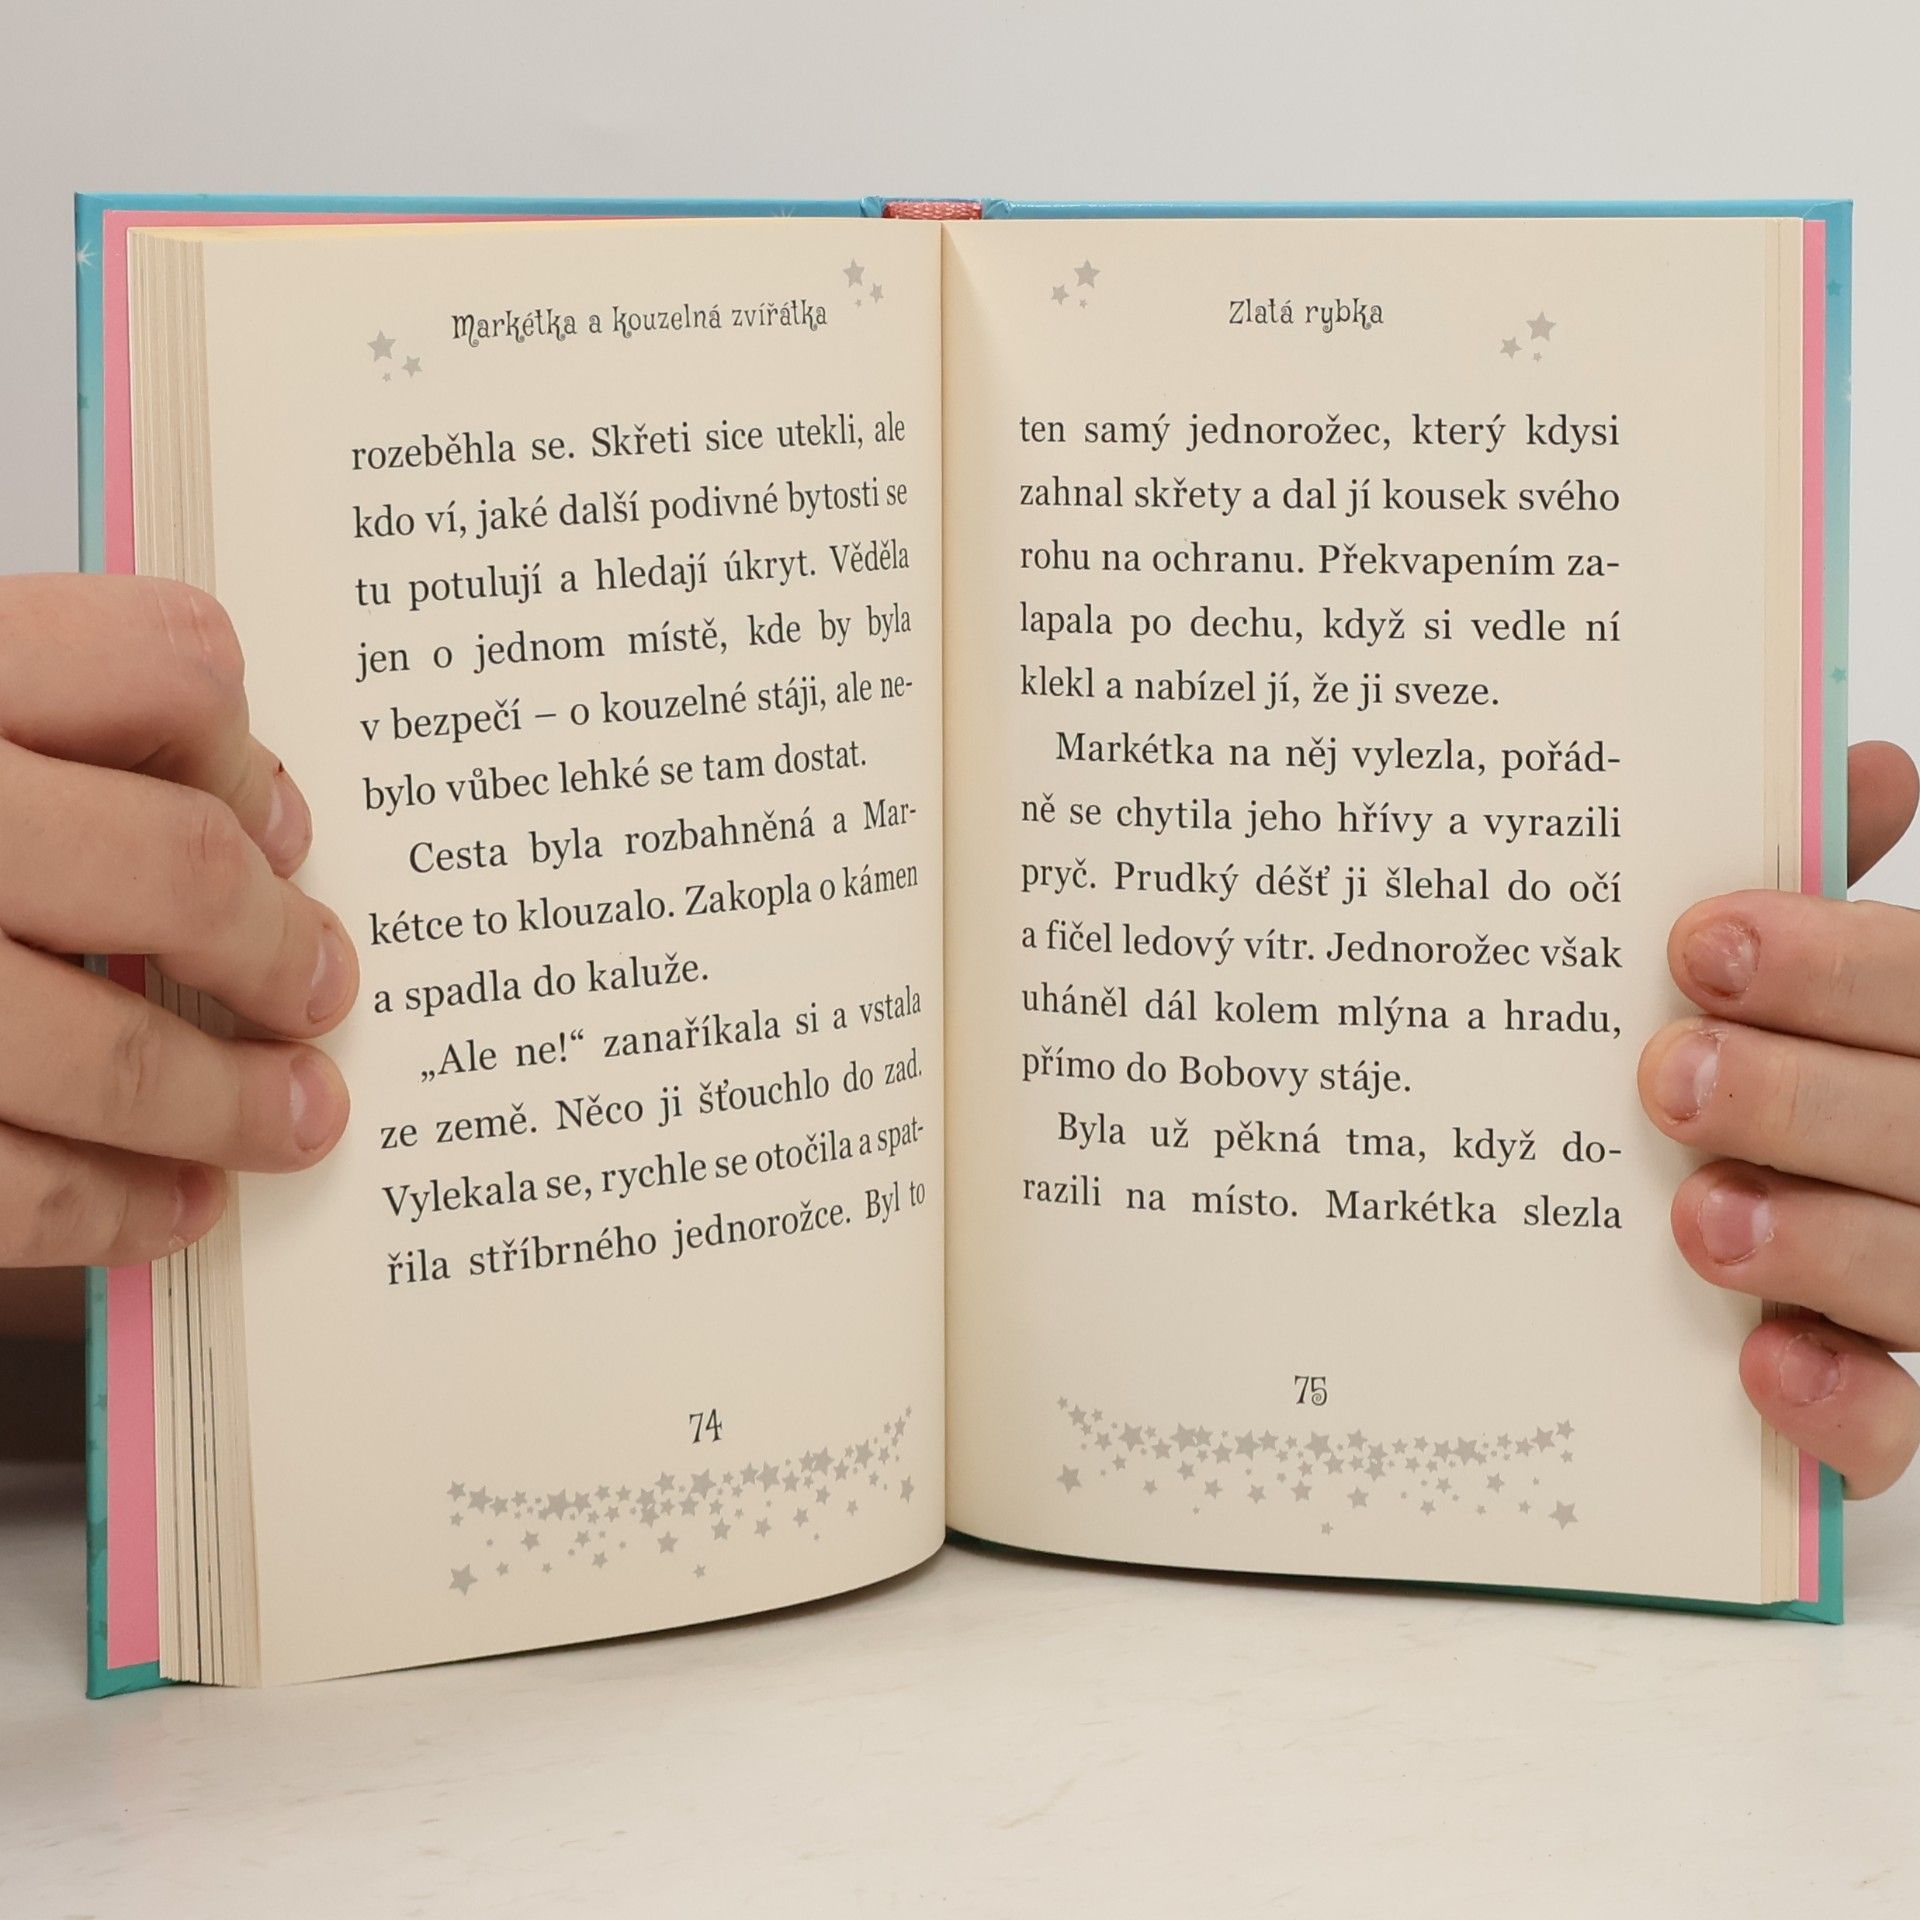 Markétka a kouzelná zvířátka
rozeběhla se. Skřeti sice utekli, ale
kdo ví, jaké další podivné bytosti se
tu potulují a hledají úkryt. Věděla
jen o jednom místě, kde by byla
v bezpečí – o kouzelné stáji, ale ne-
bylo vůbec lehké se tam dostat.
Cesta byla rozbahněná a Mar-
kétce to klouzalo. Zakopla o kámen
a spadla do kaluže.
„Ale ne!“ zanaříkala si a vstala
ze země. Něco ji šťouchlo do zad.
Vylekala se, rychle se otočila a spat-
řila stříbrného jednorožce. Byl to
74
Zlatá rybka
ten samý jednorožec, který kdysi
zahnal skřety a dal jí kousek svého
rohu na ochranu. Překvapením za-
lapala po dechu, když si vedle ní
klekl a nabízel jí, že ji sveze.
Markétka na něj vylezla, pořád-
ně se chytila jeho hřívy a vyrazili
pryč. Prudký déšť ji šlehal do očí
a fičel ledový vítr. Jednorožec však
uháněl dál kolem mlýna a hradu,
přímo do Bobovy stáje.
Byla už pěkná tma, když do-
razili na místo. Markétka slezla
75